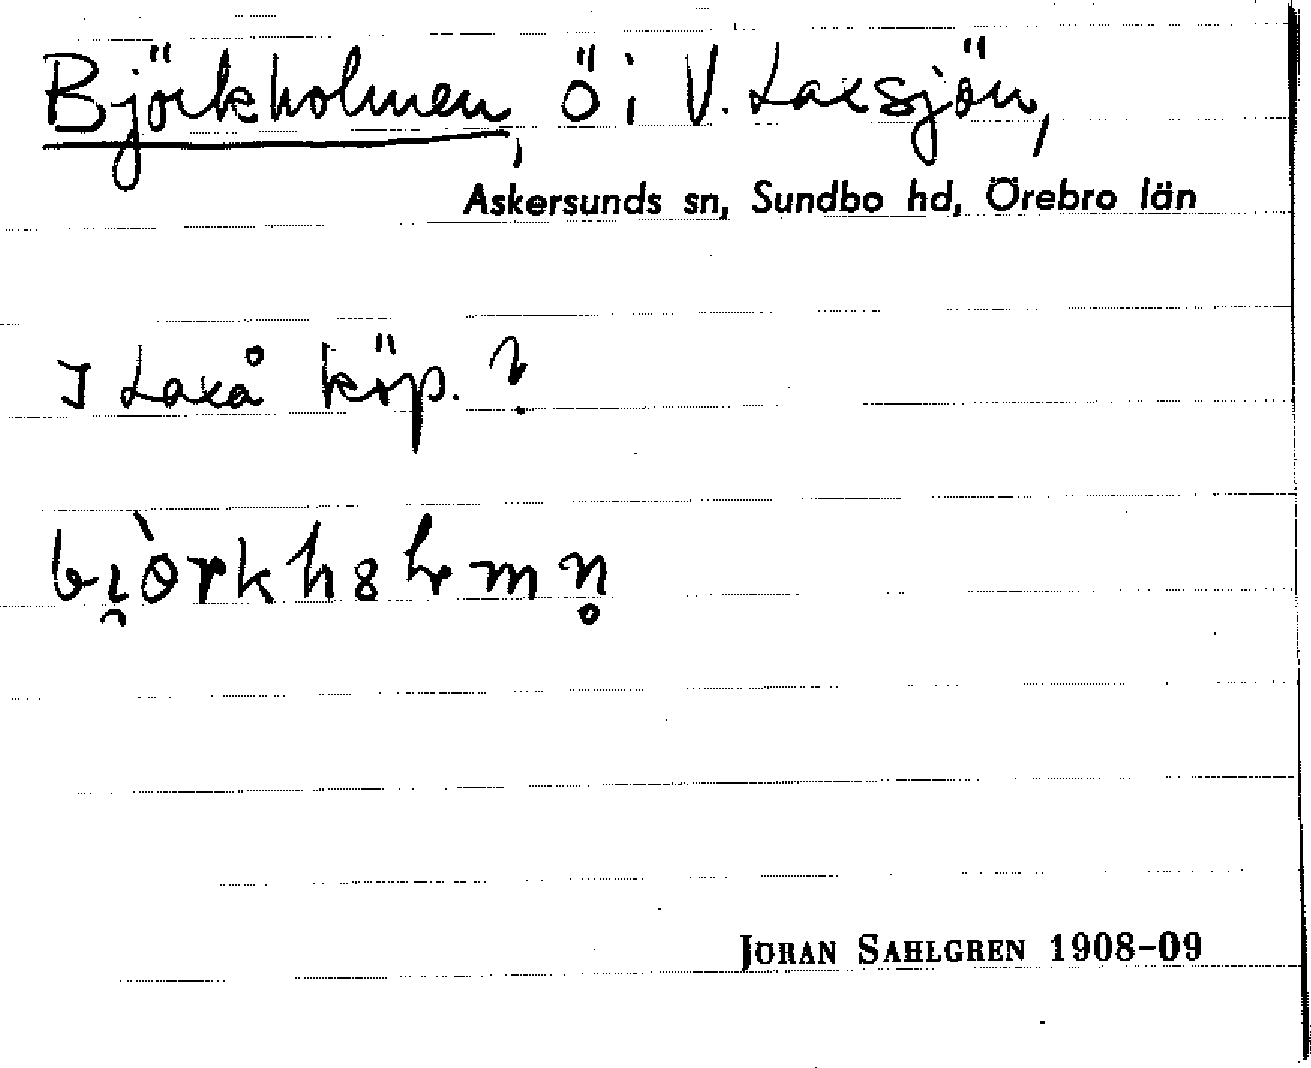 Björkholmen, ö i V. Laxsjön,
Askersunds sn, Sundbo hd, Örebro län
I Laxå köp.?
JÖRAN SAHLGREN 1908-09